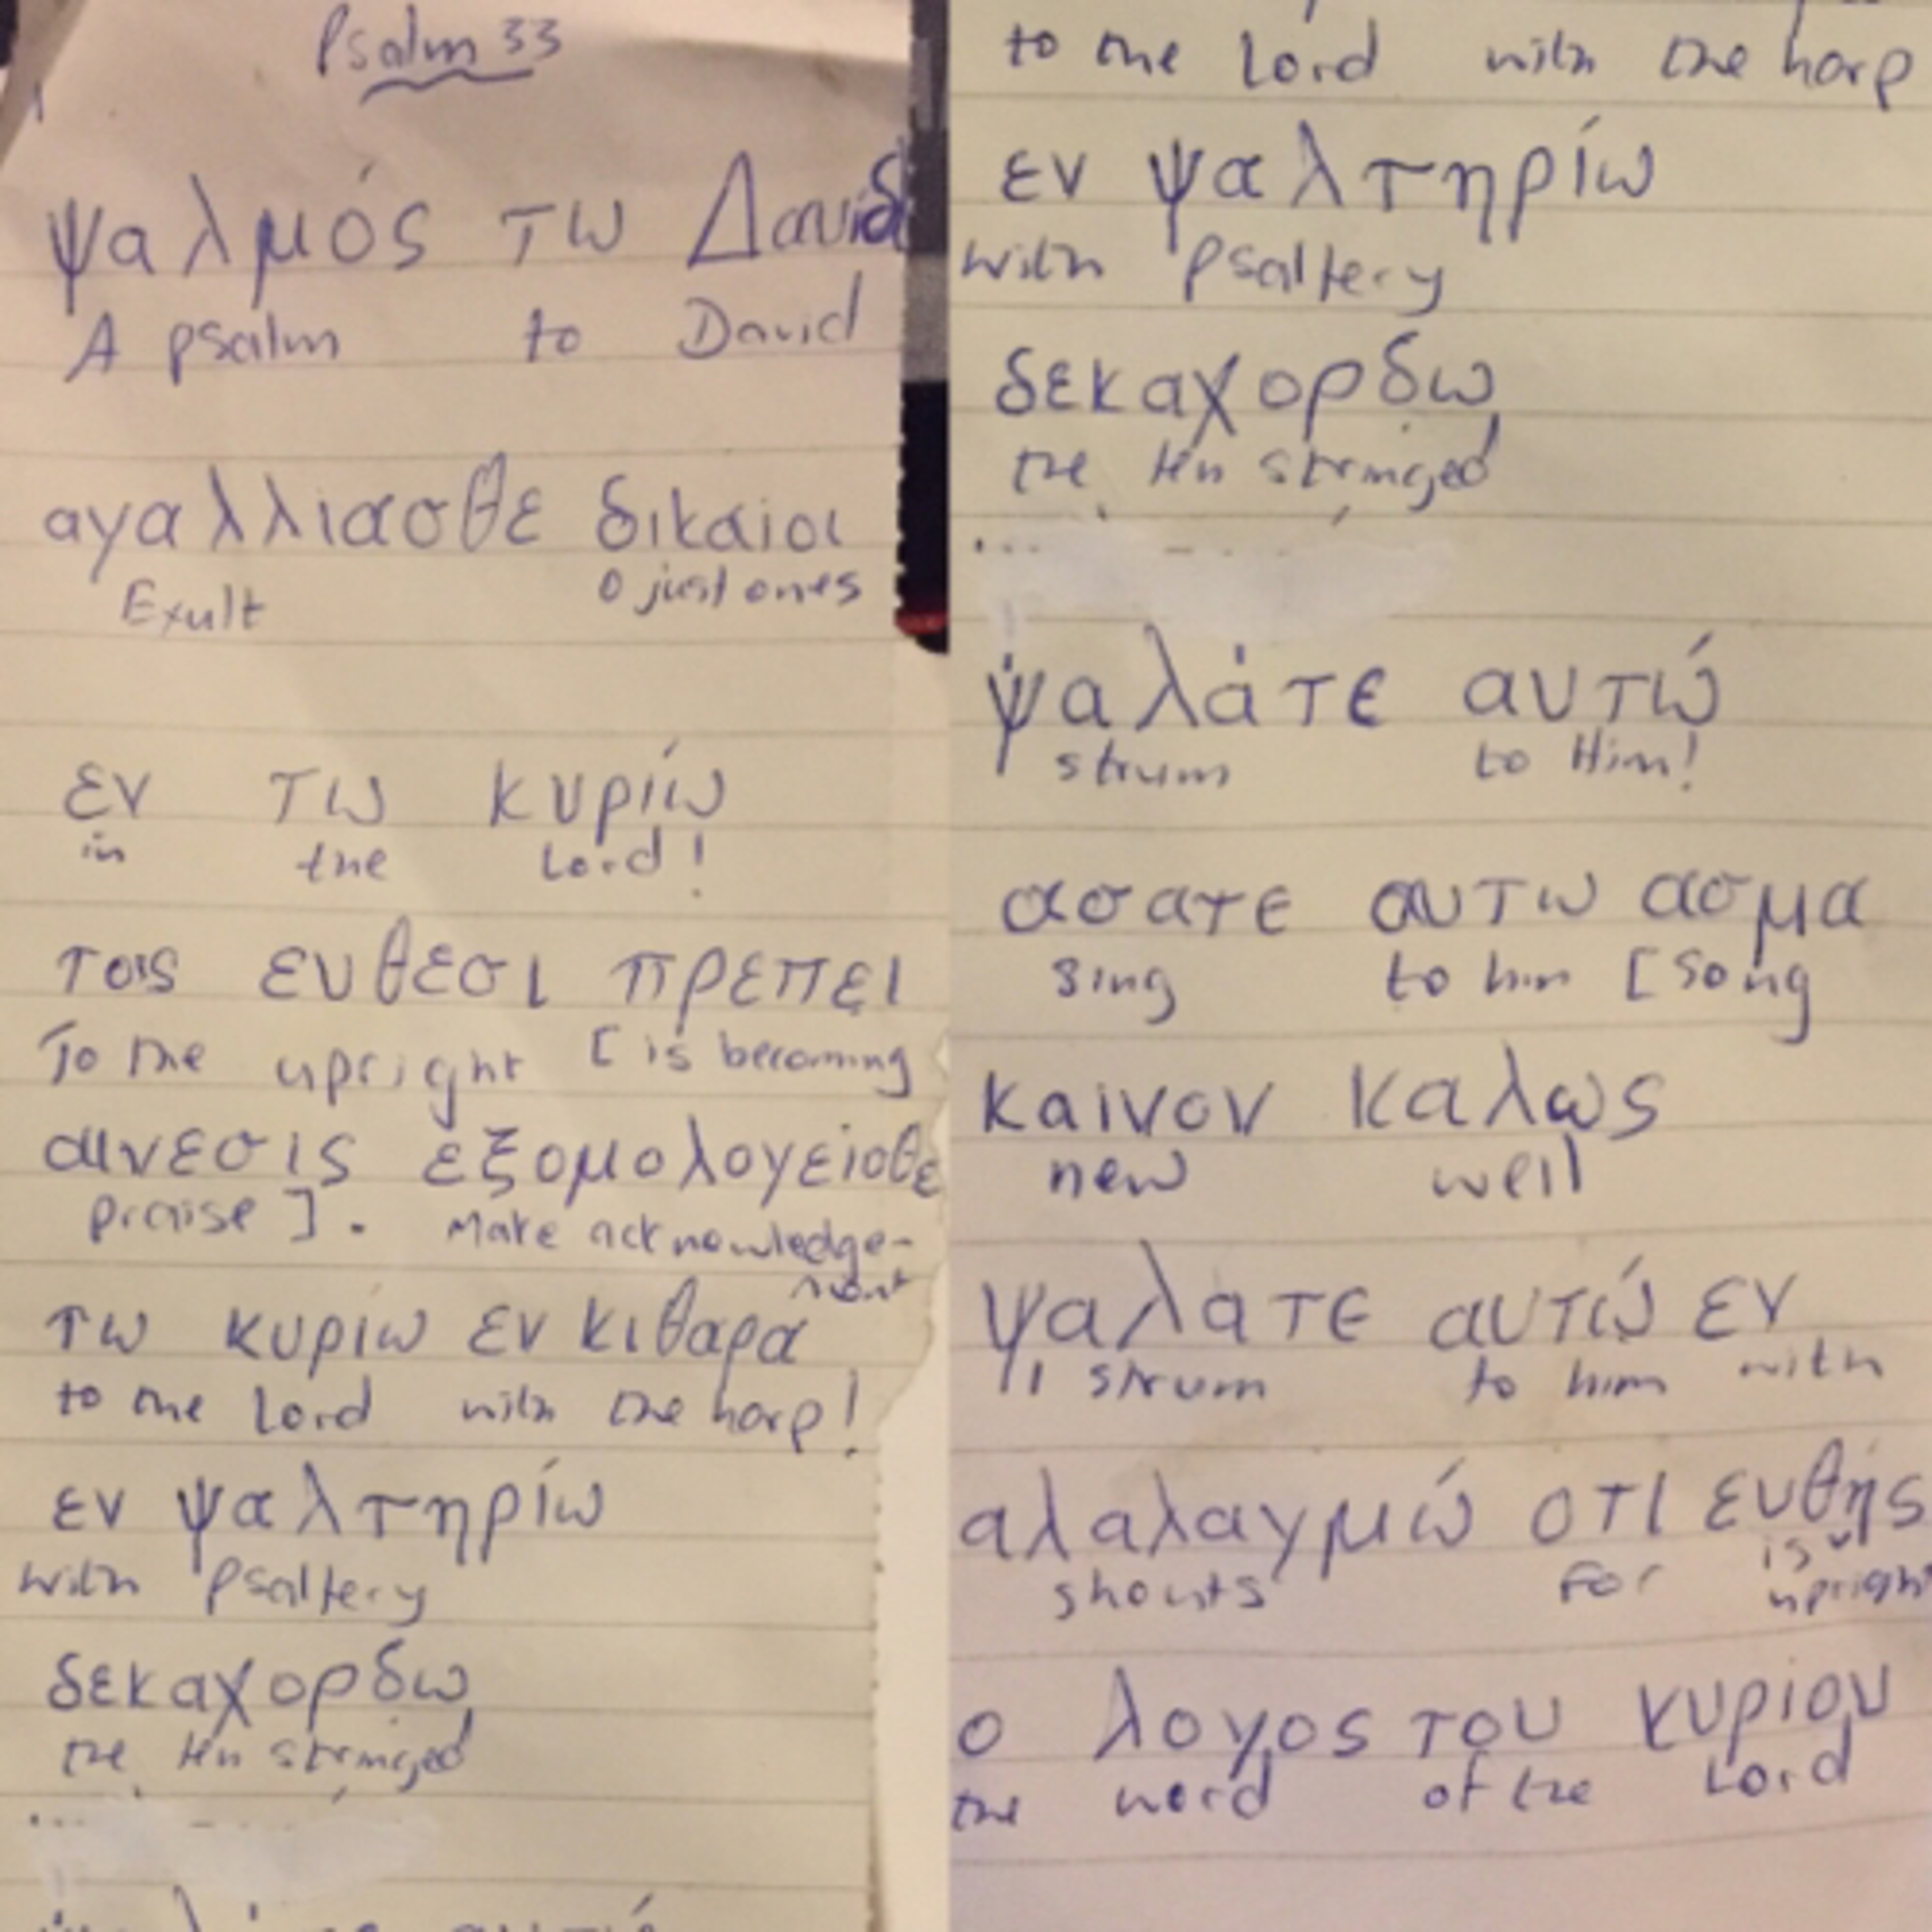 Psalm 33
ψαλμός τω Δαυίδ
A psalm to David
αγαλλιασθε δικαιοι
Exult O just ones
εν τω κυρίω
in the Lord!
τοις ευθεσι πρεπει
To the upright [is becoming
αινεσις εξομολογείσθε
praise]. Make acknowledge-
ment
τω κυρίω εν κιθαρα
to the Lord with the harp!
εν ψαλτηρίω
with Psaltery
δεκαχορδω
the ten stringed
to the Lord with the harp
εν ψαλτηρίω
with Psaltery
δεκαχορδω
the ten stringed
ψαλάτε αυτώ
strum to Him!
ασατε αυτω ασμα
sing to him [song
καινον καλως
new well
ψαλατε αυτώ εν
strum to him with
αλαλαγμώ οτι ευθής
shouts for is upright
ο λογος του κυριου
the word of the Lord